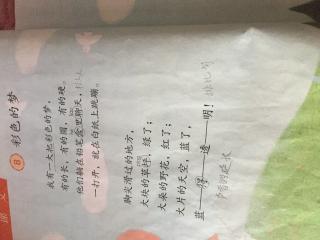 课文
8 彩色的梦
我有一大把彩色的梦，
有的长，有的圆，有的硬。
他们躺在铅笔盒里聊天，
一打开，就在白纸上跳蹦。
脚尖滑过的地方，
大块的草坪，绿了；
大朵的野花，红了；
大片的天空，蓝了，
蓝——得——透——明！
排比句